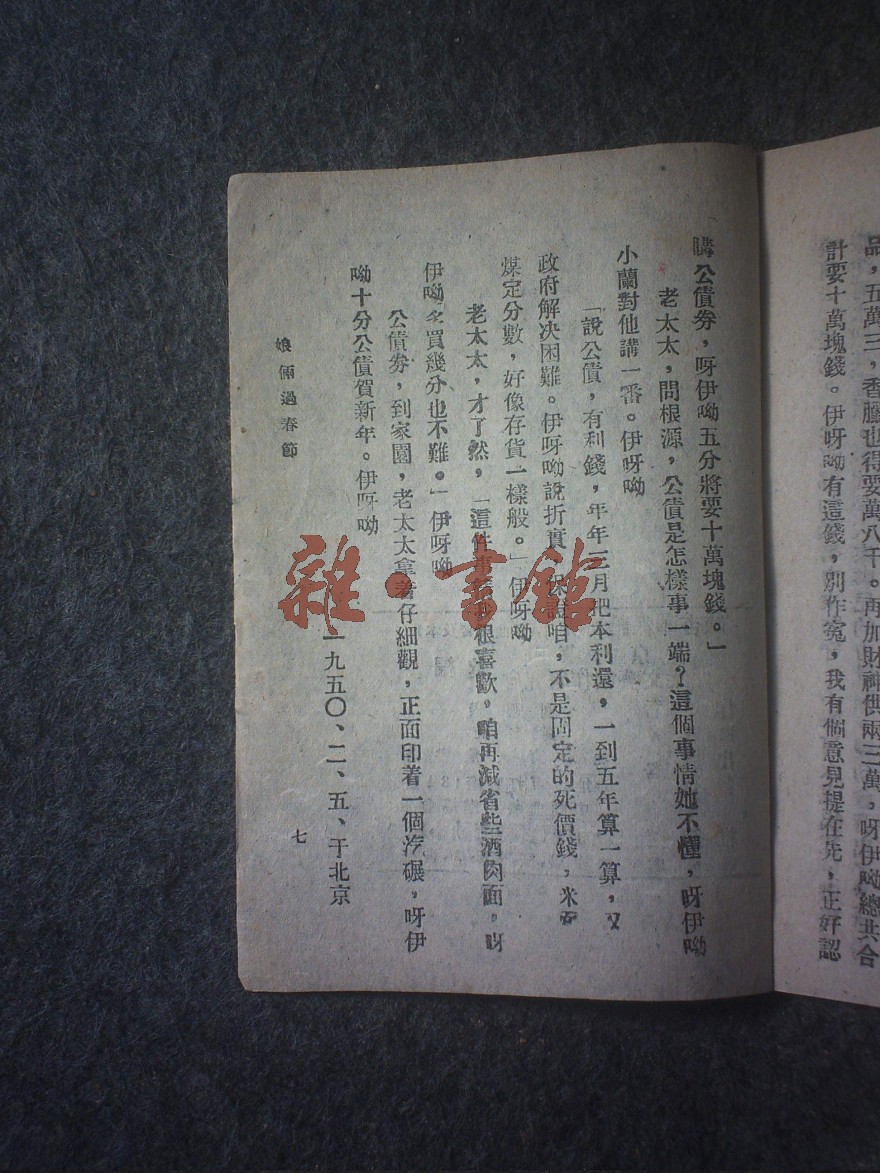 品，五萬三，香臘也得要萬八千。再加財神供兩三萬，呀伊呦總共合
計要十萬塊錢。伊呀呦有這錢，別作寃，我有個意見提在先，正好認
購公債券，呀伊呦五分將要十萬塊錢。」
老太太，問根源，公債是怎樣事一端？這個事情她不懂，呀伊呦
小蘭對他講一番。伊呀呦
「說公債，有利錢，年年三月把本利還，一到五年算一算，又
政府解决困難。伊呀呦說折實，保證咱，不是固定的死價錢，米面
煤定分數，好像存貨一樣般。」伊呀呦
老太太，才了然，「這件事 很喜歡，咱再減省些酒肉面，呀
伊呦多買幾分也不難。」伊呀呦
公債劵，到家園，老太太拿着仔細觀，正面印着一個汽碾，呀伊
呦十分公債賀新年。伊呀呦
一九五〇、二、五、于北京
娘倆過春節
七
雜·書館